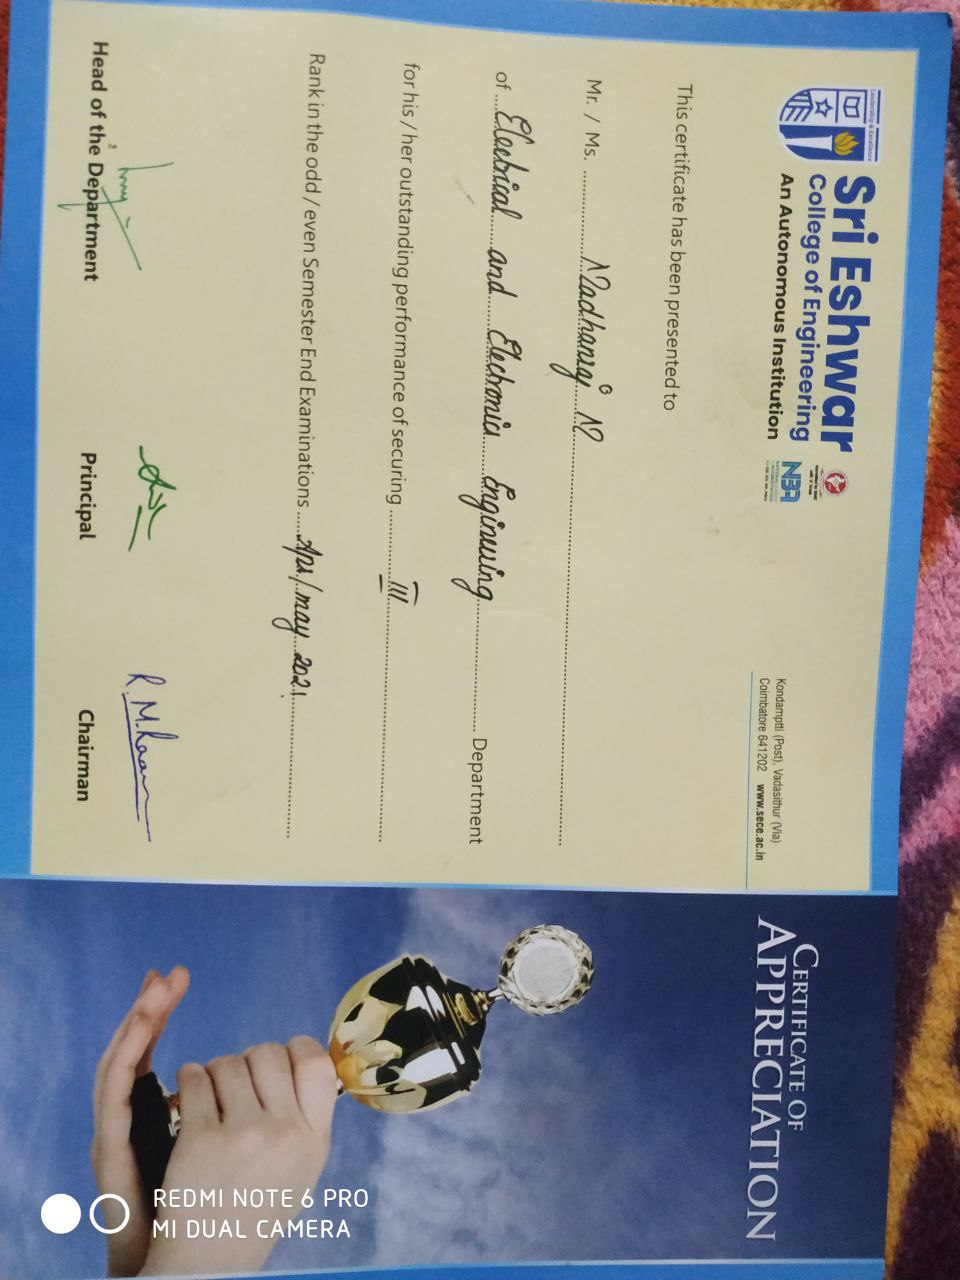 Leadership & Excellence
Sri Eshwar
College of Engineering
An Autonomous Institution
NBA
Kondamptti (Post), Vadasithur (Via)
Coimbatore 641202 www.sece.ac.in
This certificate has been presented to
Mr. / Ms. Madhansri M
of Electrical and Electronics Engineering Department
for his / her outstanding performance of securing III
Rank in the odd / even Semester End Examinations Apr/may 2021.
Head of the Department
Principal
R.M.
Chairman
CERTIFICATE OF
APPRECIATION
REDMI NOTE 6 PRO
MI DUAL CAMERA